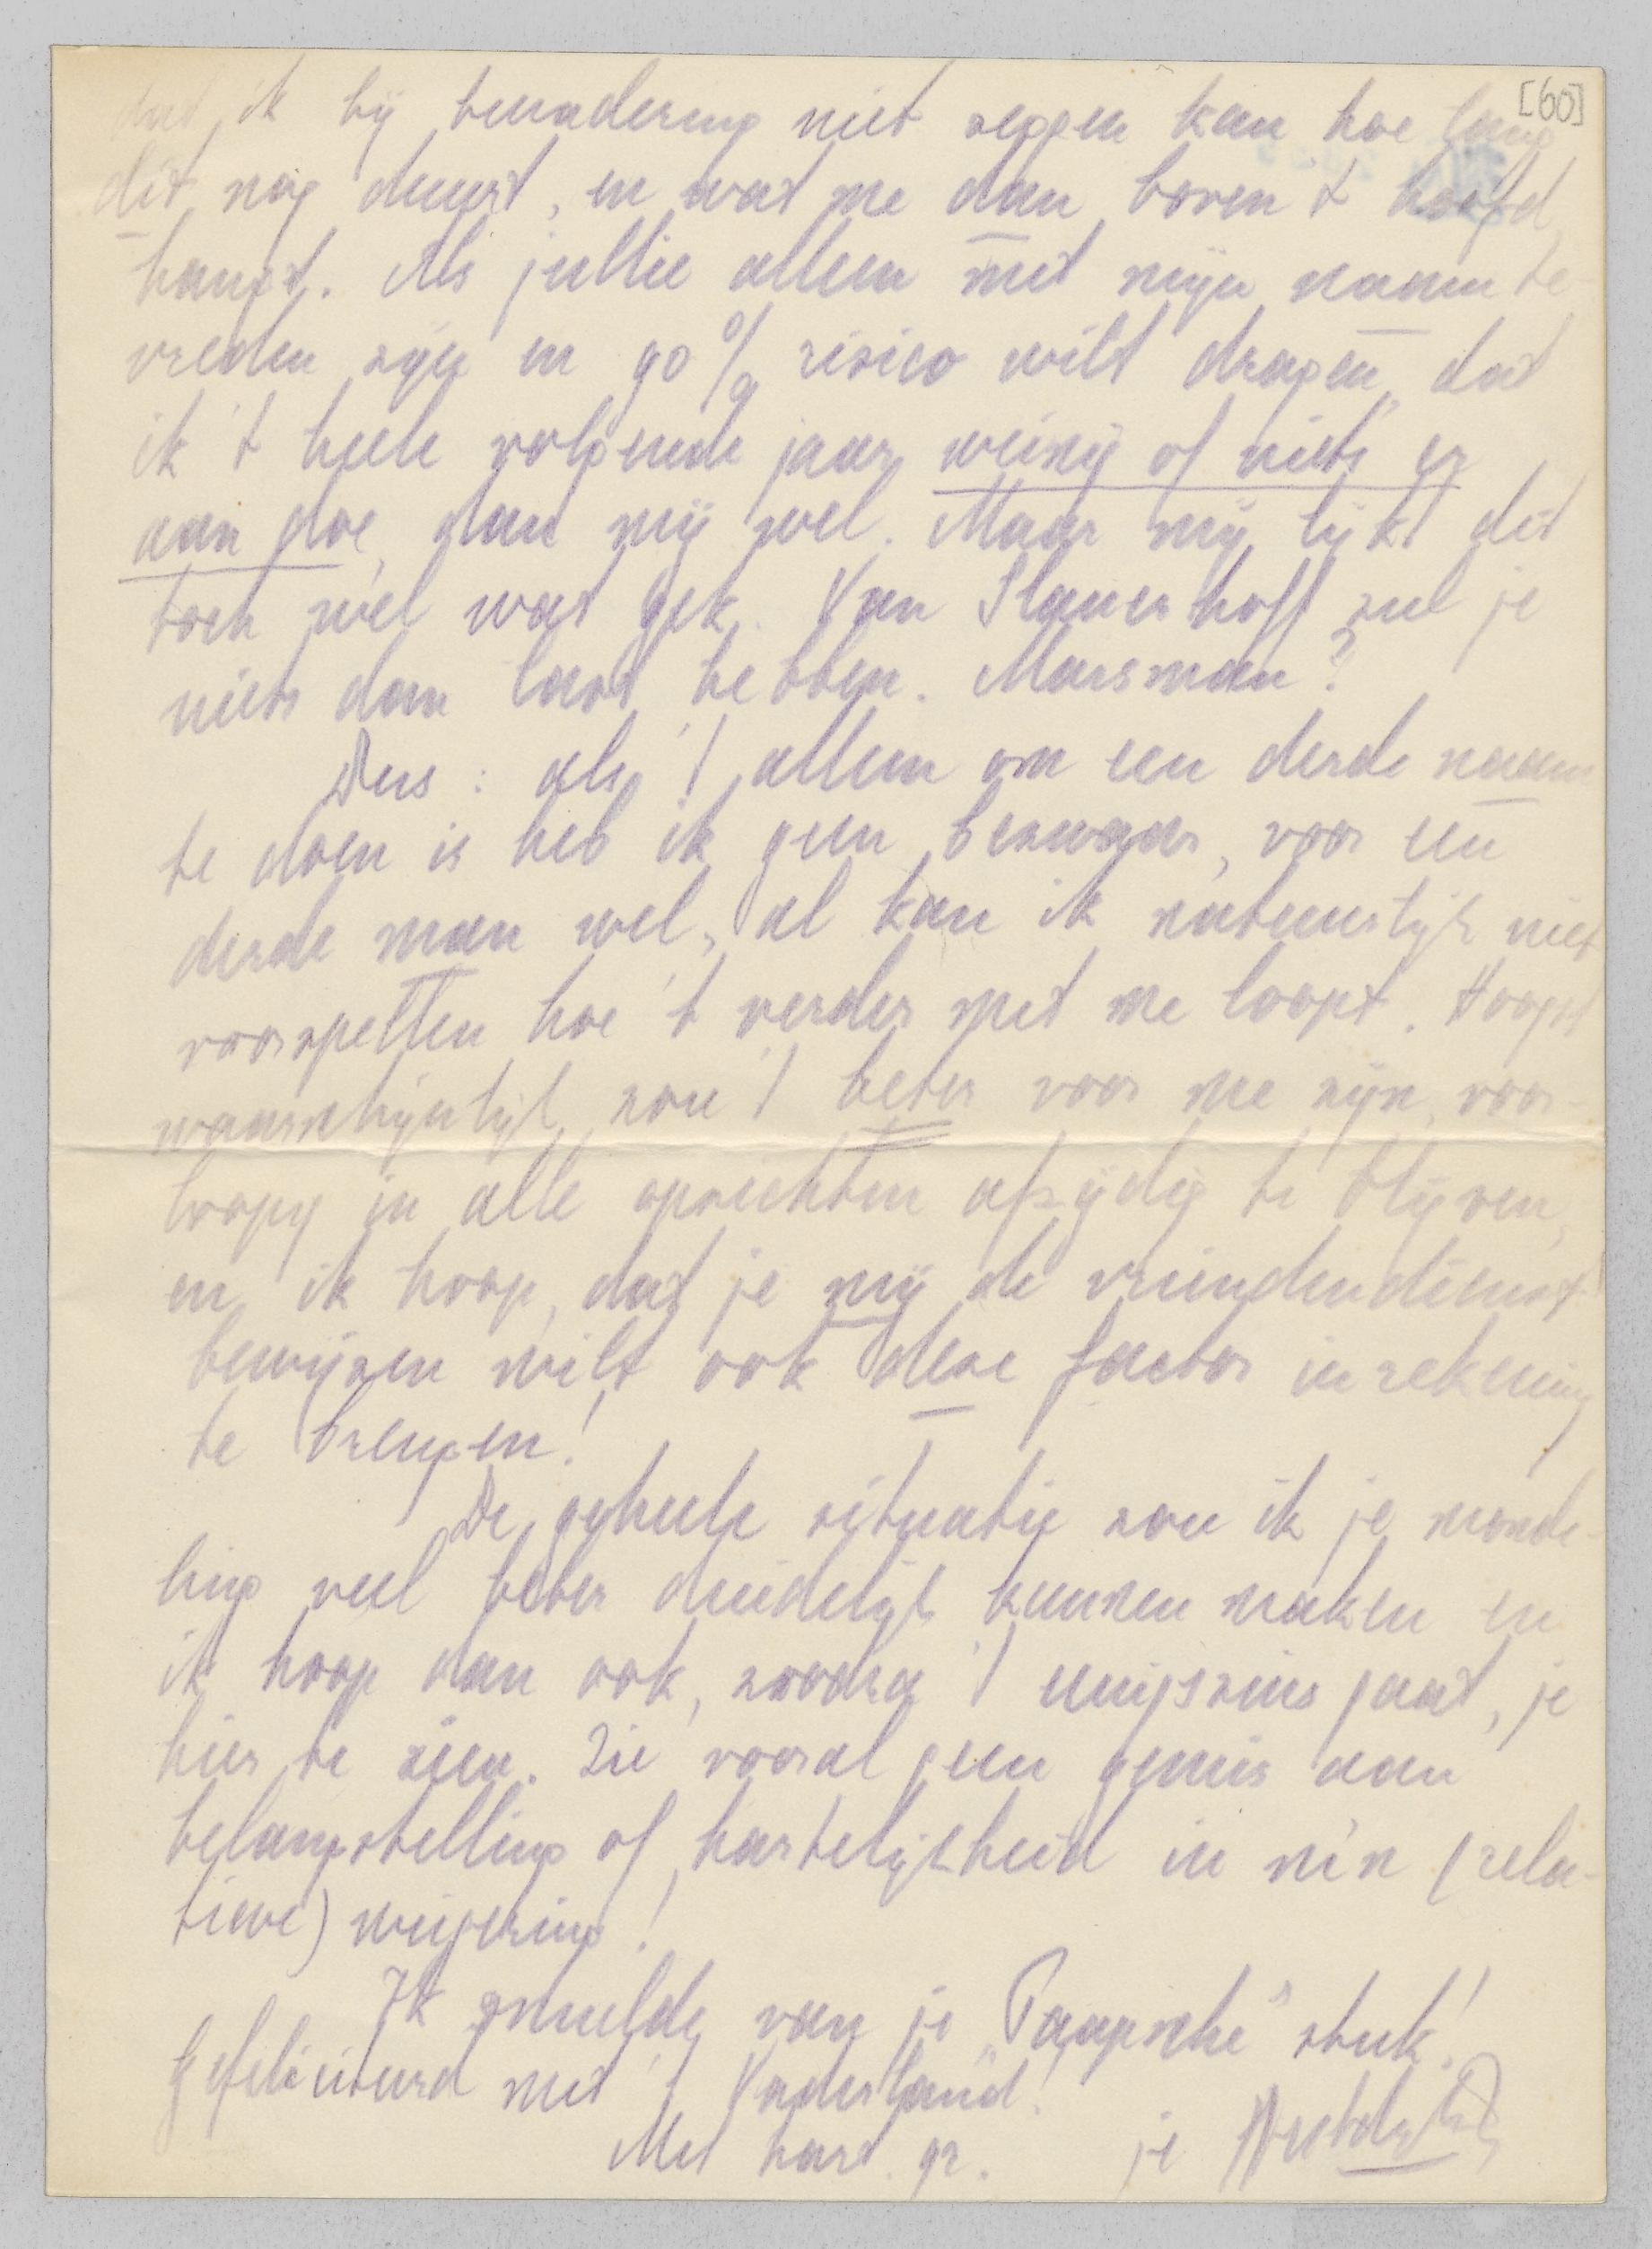 [60]
dat ik bij benadering niet zeggen kan hoe lang
dit nog duurt, en wat me dan boven 't hoofd
hangt. Als jullie alleen met mijn naam te-
vreden zijn en 90% risico wilt dragen, dat
ik 't heele volgende jaar weinig of niets er
aan doe, dan mij wel. Maar mij lijkt dit
toch wel wat gek. Van Slauerhoff zul je
niets dan last hebben. Marsman?
Dus: als 't alleen om een derde naam
te doen is heb ik geen bezwaar, voor een
derde man wel, al kan ik natuurlijk niet
voorspellen hoe 't verder met me loopt. Hoogst
waarschijnlijk zou 't beter voor me zijn voor-
loopig in alle opzichten afzijdig te blijven,
en ik hoop, dat je mij de vriendendienst
bewijzen wilt ook deze factor in rekening
te brengen!
De geheele situatie zou ik je monde-
ling veel beter duidelijk kunnen maken en
ik hoop dan ook, zoodra 't eenigszins gaat, je
hier te zien. Zie vooral geen gemis aan
belangstelling of hartelijkheid in m'n (rela-
tieve) weigering!
Ik smulde van je "Paapsche" stuk!
Gefeliciteerd met 't Vaderland!
Met hart. gr. je